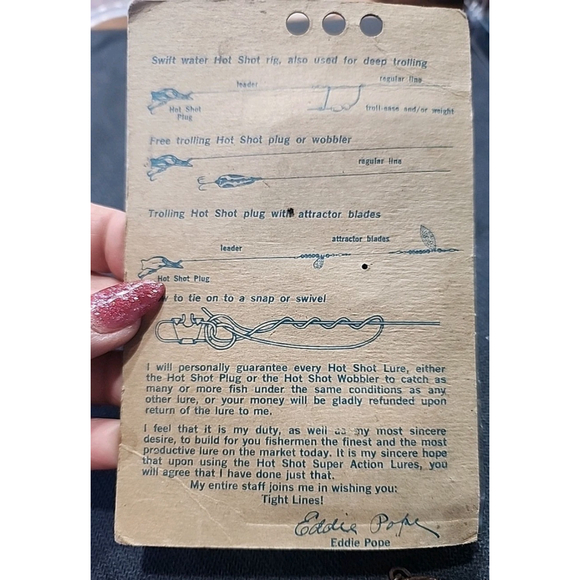 Swift water Hot Shot rig, also used for deep trolling
leader
regular line
Hot Shot
Plug
troll-ease and/or weight
Free trolling Hot Shot plug or wobbler
regular line
Trolling Hot Shot plug with attractor blades
leader
attractor blades
Hot Shot Plug
to tie on to a snap or swivel
I will personally guarantee every Hot Shot Lure, either
the Hot Shot Plug or the Hot Shot Wobbler to catch as
many or more fish under the same conditions as any
other lure, or your money will be gladly refunded upon
return of the lure to me.
I feel that it is my duty, as well as my most sincere
desire, to build for you fishermen the finest and the most
productive lure on the market today. It is my sincere hope
that upon using the Hot Shot Super Action Lures, you
will agree that I have done just that.
My entire staff joins me in wishing you:
Tight Lines!
Eddie Pope
Eddie Pope